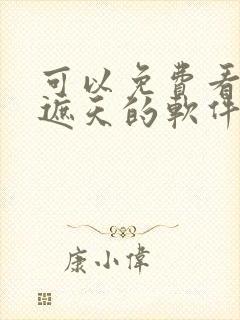 可以免費看
遮天的軟件
康小偉